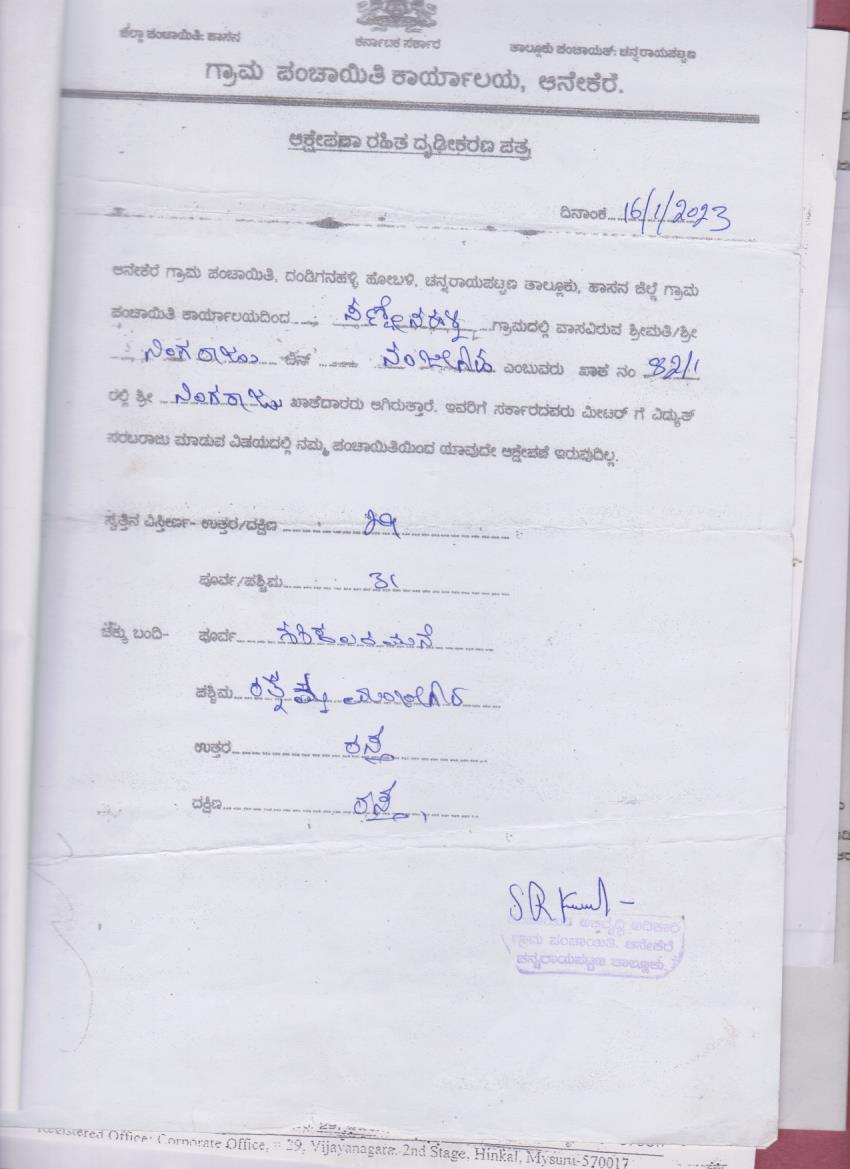 ಜಿಲ್ಲಾ ಪಂಚಾಯಿತಿ: ಹಾಸನ
ಕರ್ನಾಟಕ ಸರ್ಕಾರ
ತಾಲ್ಲೂಕು ಪಂಚಾಯತ್: ಚನ್ನರಾಯಪಟ್ಟಣ
ಗ್ರಾಮ ಪಂಚಾಯಿತಿ ಕಾರ್ಯಾಲಯ, ಆನೇಕೆರೆ.
ಆಕ್ಷೇಪಣಾ ರಹಿತ ದೃಢೀಕರಣ ಪತ್ರ
ದಿನಾಂಕ 16/1/2023
ಆನೇಕೆರೆ ಗ್ರಾಮ ಪಂಚಾಯಿತಿ, ದಂಡಿಗನಹಳ್ಳಿ ಹೋಬಳಿ, ಚನ್ನರಾಯಪಟ್ಟಣ ತಾಲ್ಲೂಕು, ಹಾಸನ ಜಿಲ್ಲೆ ಗ್ರಾಮ
ಪಂಚಾಯಿತಿ ಕಾರ್ಯಾಲಯದಿಂದ ಗ್ರಾಮದಲ್ಲಿ ವಾಸವಿರುವ ಶ್ರೀಮತಿ/ಶ್ರೀ
ನಿಂಗರಾಜು ಬಿನ್ ನಂಜೇಗೌಡ ಎಂಬುವರು ಖಾತೆ ನಂ 82/1
ರಲ್ಲಿ ಶ್ರೀ ನಿಂಗರಾಜು ಖಾತೆದಾರರು ಆಗಿರುತ್ತಾರೆ. ಇವರಿಗೆ ಸರ್ಕಾರದವರು ಮೀಟರ್ ಗೆ ವಿದ್ಯುತ್
ಸರಬರಾಜು ಮಾಡುವ ವಿಷಯದಲ್ಲಿ ನಮ್ಮ ಪಂಚಾಯಿತಿಯಿಂದ ಯಾವುದೇ ಆಕ್ಷೇಪಣೆ ಇರುವುದಿಲ್ಲ.
ಸ್ವತ್ತಿನ ವಿಸ್ತೀರ್ಣ- ಉತ್ತರ/ದಕ್ಷಿಣ
ಪೂರ್ವ/ಪಶ್ಚಿಮ 31
ಚೆಕ್ಕು ಬಂದಿ- ಪೂರ್ವ
ಪಶ್ಚಿಮ
ಉತ್ತರ ರಸ್ತೆ
ದಕ್ಷಿಣ ರಸ್ತೆ
ಅಭಿವೃದ್ಧಿ ಅಧಿಕಾರಿ
ಗ್ರಾಮ ಪಂಚಾಯಿತಿ, ಆನೇಕೆರೆ
ಚನ್ನರಾಯಪಟ್ಟಣ ತಾಲ್ಲೂಕು.
Registered Office: Corporate Office, # 29, Vijayanagara 2nd Stage, Hinkal, Mysuru-570017